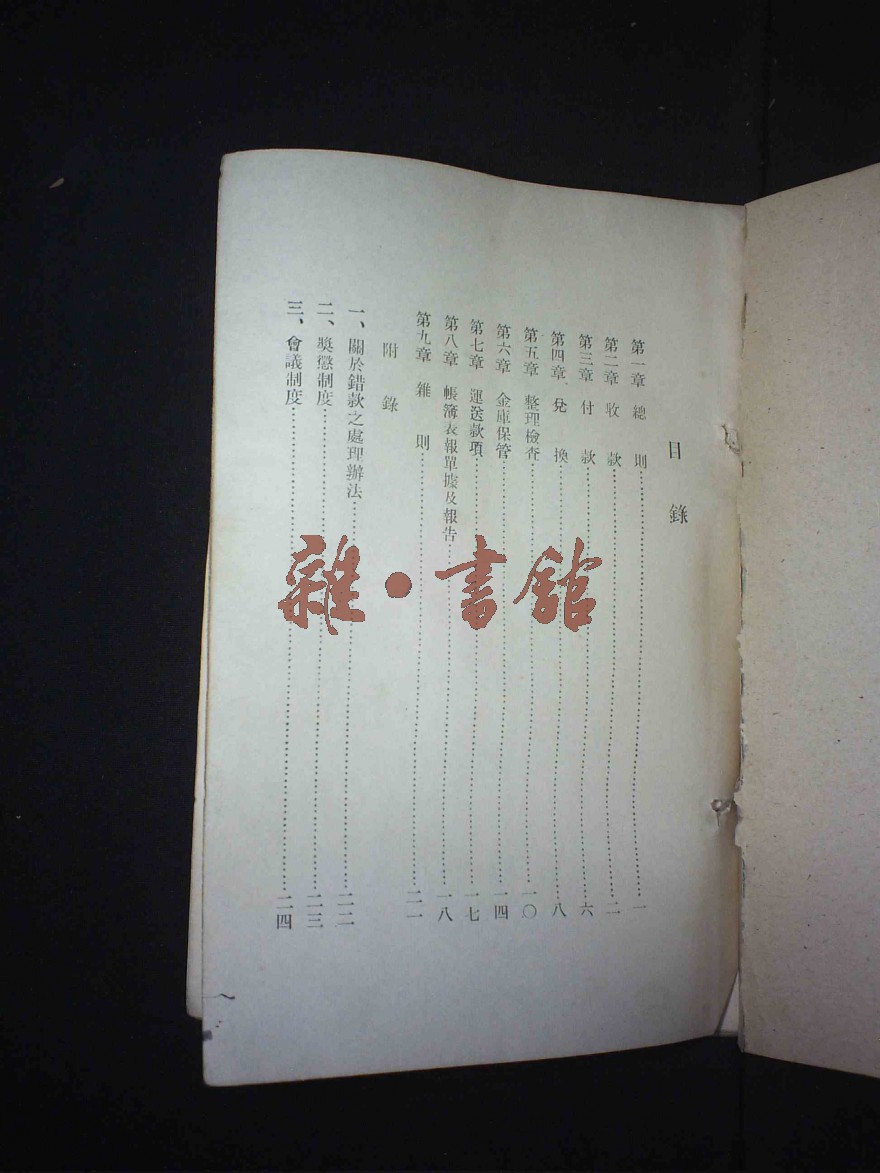 目錄
第一章 總則……一
第二章 收款……二
第三章 付款……六
第四章 兌換……八
第五章 整理檢查……一〇
第六章 金庫保管……一四
第七章 運送款項……一七
第八章 帳簿表報單據及報告……一八
第九章 雜則……二一
附錄
一、關於錯款之處理辦法……二二
二、獎懲制度……二三
三、會議制度……二四
雜·書館